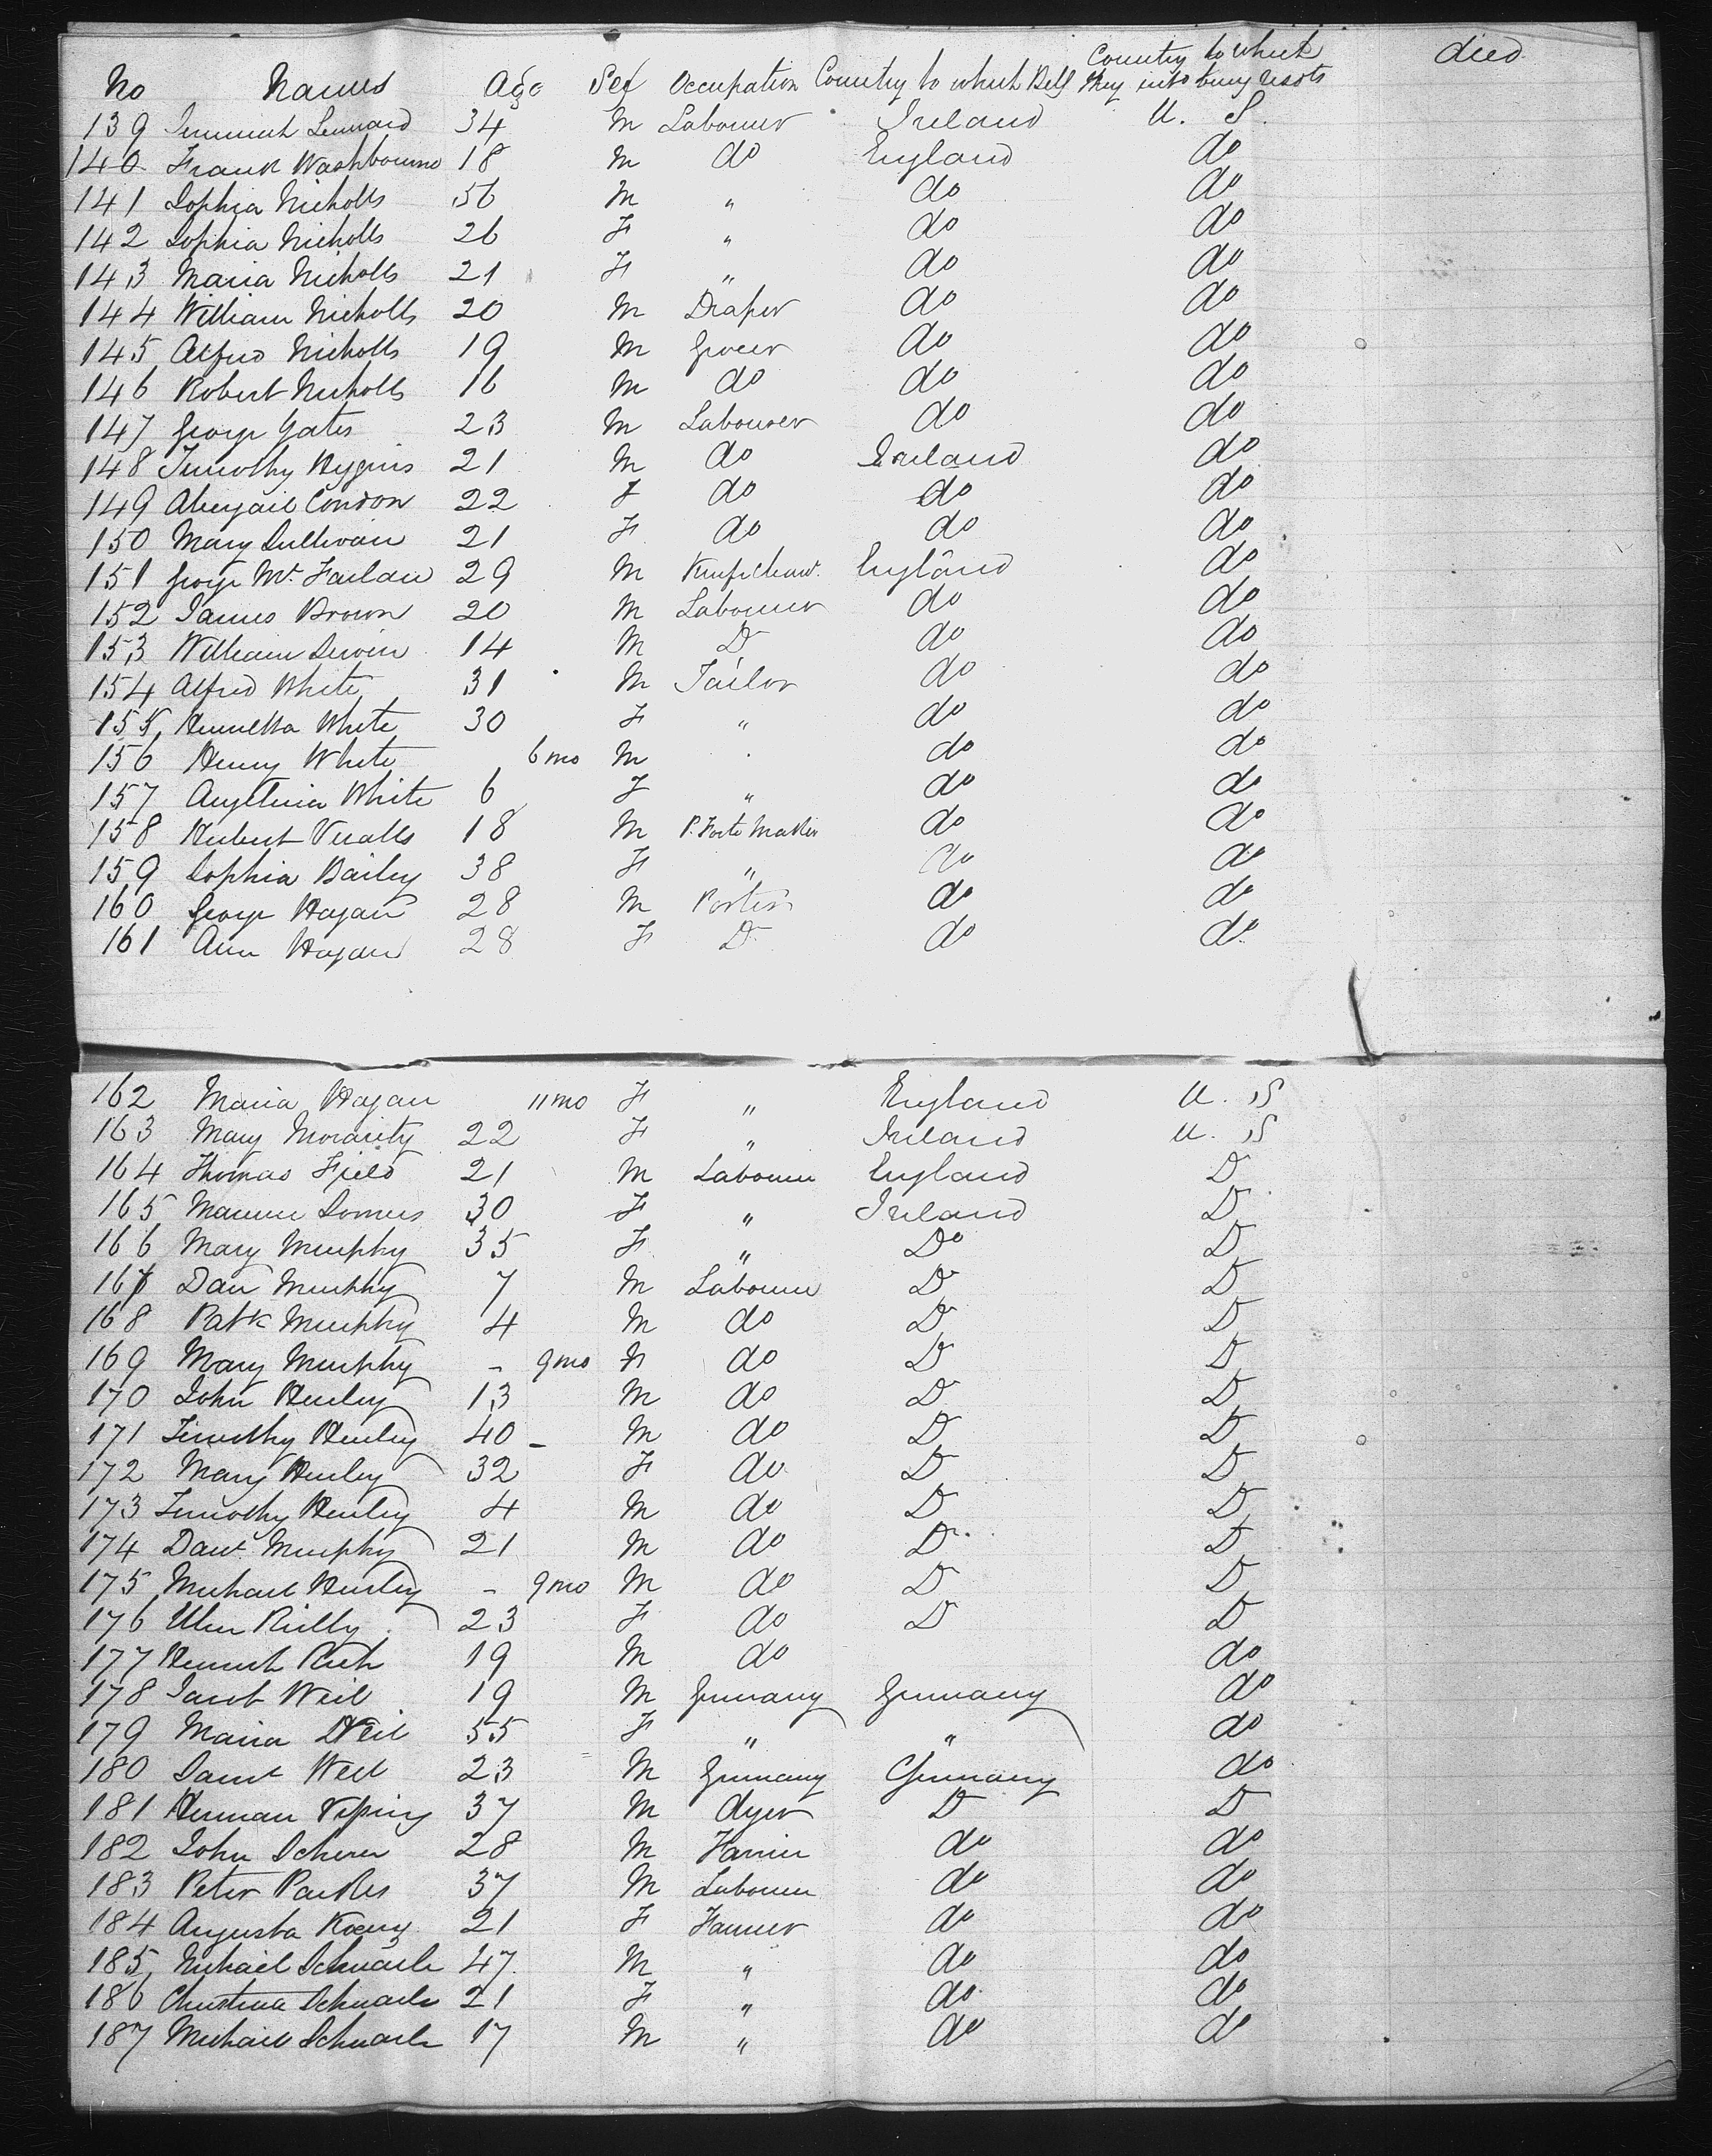 No Names Age Sex Occupation Country to which Belg Country to which they intd being resdts died
139 Jeremiah Lennard 34 M Labourer Ireland U. S.
140 Frank Washbourne 18 M do England do
141 Sophia Nicholls 56 M " do do
142 Sophia Nicholls 26 F " do do
143 Maria Nicholls 21 F " do do
144 William Nicholls 20 M Draper do do
145 Alfred Nicholls 19 M Grocer do do
146 Robert Nicholls 16 M do do do
147 George Yates 23 M Labourer do do
148 Timothy Higgins 21 M do Ireland do
149 Abigail Condon 22 F do do do
150 Mary Sullivan 21 F do do do
151 George Mc Farlane 29 M England do
152 James Brown 20 M Labourer do do
153 William Irwin 14 M Do do do
154 Alfred White 31 M Tailor do do
155 Henrietta White 30 F " do do
156 Henry White 6 mo M do do
157 White 6 F " do do
158 Hubert Veralls 18 M P. Forte Maker do do
159 Sophia Bailey 38 F " do do
160 George Hagan 28 M Porter do do
161 Ann Hagan 28 F Do do do
162 Maria Hagan 11 mo F " England U. S
163 Mary Morarity 22 F " Ireland U. S
164 Thomas Field 21 M Labourer England Do
165 Somers 30 F " Ireland Do
166 Mary Murphy 35 F " Do Do
167 Dan Murphy 7 M Labourer Do Do
168 Patk Murphy 4 M do Do Do
169 Mary Murphy - 9 mo F do Do Do
170 John Henley 13 M do Do Do
171 Timothy Henley 40 - M do Do Do
172 Mary Henley 32 F do Do Do
173 Timothy Henley 4 M do Do Do
174 Danl Murphy 21 M do Do Do
175 Michael Henley - 9 mo M do Do Do
176 Ellen Reilly 23 F do Do Do
177 19 M do do
178 Jacob Weil 19 M Germany Germany do
179 Maria Weil 55 F " " do
180 Weil 23 M Germany Germany do
181 Herman 37 M dyer Do Do
182 John Scherer 28 M Farrier do do
183 Peter 37 M Labourer do do
184 Augusta Koenig 21 F Farmer do do
185 Michael 47 M " do do
186 Christina 21 F " do do
187 Michael 17 M " do do